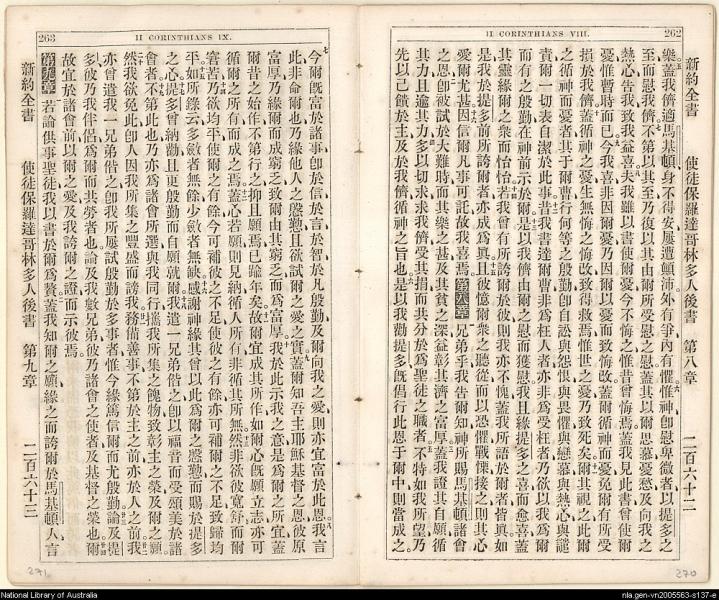 262
II CORINTHIANS VIII.
新約全書 使徒保羅達哥林多人後書 第八章 二百六十二
樂蓋我儕適馬基頓身不得安屢遭顛沛外有爭內有懼惟神卽慰卑微者以提多之
至而慰我儕不第以其至乃復以其由爾所受慰之慰蓋其以爾思慕憂愁及向我之
熱心告我致我益喜夫我雖以書使爾憂今不悔之惟昔曾悔焉蓋我見此書曾使爾
憂惟暫時而已今我喜非因爾憂乃因爾以憂而致悔改蓋爾循神而憂免爾有所受
損於我儕蓋循神之憂生無悔之悔改致得救焉惟世之憂乃致死矣爾其視之此爾
之循神而憂者其于爾曹行何等之殷勤卽自訟與怨恨與畏懼與戀慕與熱心與譴
責爾一切表自潔於此事昔我書達爾曹非爲枉人者亦非爲受枉者乃欲以我爲爾
而有之殷勤在神前示於爾是以我儕由爾之慰而獲慰我且緣提多之喜而愈喜蓋
其靈緣爾衆之而怡怡若我曾有所誇爾於彼則我亦不愧蓋我所語於爾者皆眞如
是我於提多前所誇爾者亦成爲眞且彼憶爾衆之聽從而以恐懼戰慄接之則其心
愛爾尤甚因信爾凡事可託故我喜焉第八章兄弟乎我告爾知神所賜馬基頓諸會
之恩卽被試於大難時而其樂之甚及其貧之深益彰其濟之富厚蓋我證其自願循
其力且逾其力多以切求求我儕受其捐而共分於爲聖徒之職者不特如我所望乃
先以己饋於主及於我循神之旨也是以我勸提多旣倡行此恩于爾中則當成之
270
263
II CORINTHIANS IX.
今爾旣富於諸事卽於信於言於智於凡殷勤及爾向我之愛則亦宜富於此恩我言
此非命爾也乃緣他人之慇懃且欲試爾之愛之實蓋爾知吾主耶穌基督之恩彼原
富厚乃緣爾而成窮乏致爾由其窮乏而爲富厚我於此示我之意是爲爾之所宜蓋
爾昔之始作不第行之抑且願焉已踰年矣故爾宜成其所作如爾心旣願立志亦可
循爾之所有而成之焉蓋心若願則見納循人所有非循其所無然非欲彼寬舒而爾
窘苦乃欲均平使爾之有餘今可補彼之不足使彼之有餘亦可補爾之不足致歸均
平如所錄云多斂者無餘少斂者無缺感謝神緣其曾以此爲爾之慇懃而賜於提多
之心提多曾納勸且更殷勤而自願就爾我遣一兄弟偕之卽以福音而受頌美於諸
會者不第此也乃亦爲諸會所選與我同行攜我所集之餽物致彰主之榮及爾之願
然我欲免此卽人因我所集之豐盛而謗我務備善事不第於主之前亦於人之前我
亦曾遣我一兄弟偕之卽我所屢試殷勤於多事者惟今緣篤信爾而尤殷勤論及提
多彼乃我伴侶爲爾而共勞者也論及我數兄弟彼乃諸會之使者及基督之榮也爾
故宜於諸會前以爾之愛及我誇爾之證而示彼焉
第九章若論供事聖徒我以書於爾爲贅蓋我知爾之願緣之而誇爾於馬基頓人言
新約全書 使徒保羅達哥林多人後書 第九章 二百六十三
271
National Library of Australia
nla.gen-vn2005563-s137-e